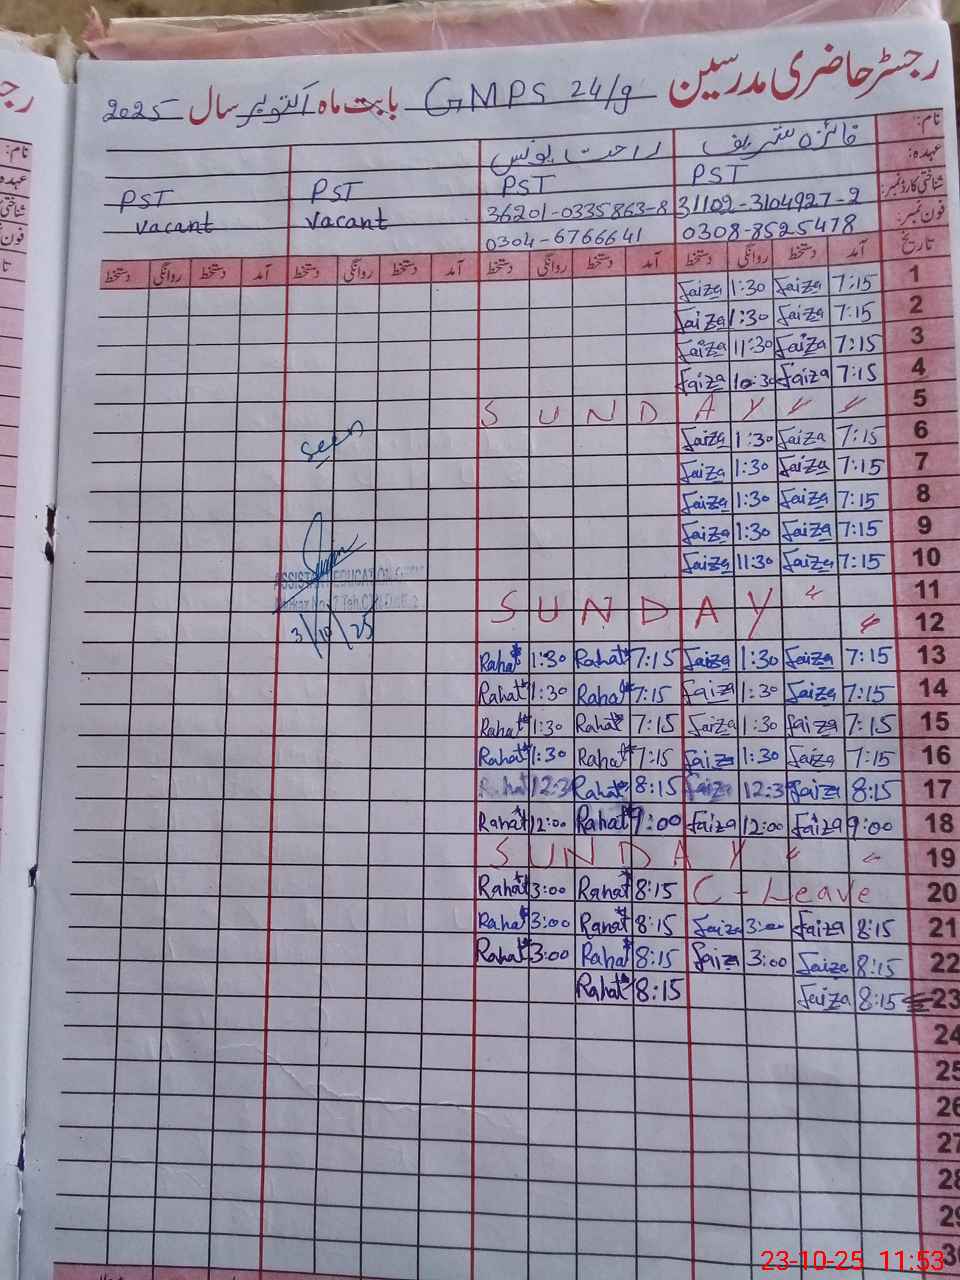 رجسٹر حاضری مدرسین GMPS 24/g بابت ماہ اکتوبر سال 2025
نام: فائزہ شریف راحت یونس
عہدہ: PST PST PST PST
شناختی کارڈ نمبر: 31102-3104927-2 36201-0335863-8 vacant vacant
فون نمبر: 0308-8525478 0304-6766641
تاریخ آمد دستخط روانگی دستخط آمد دستخط روانگی دستخط آمد دستخط روانگی دستخط آمد دستخط روانگی دستخط
Faiza 1:30 Faiza 7:15 1
Faiza 1:30 Faiza 7:15 2
Faiza 11:30 Faiza 7:15 3
Faiza 10:30 Faiza 7:15 4
S U N D A Y 〃 〃 5
Faiza 1:30 Faiza 7:15 6
seen
Faiza 1:30 Faiza 7:15 7
Faiza 1:30 Faiza 7:15 8
Faiza 1:30 Faiza 7:15 9
Faiza 11:30 Faiza 7:15 10
ASSISTANT EDUCATION
11
S U N D A Y 〃 〃 12
3/10/25
Rahat 1:30 Rahat 7:15 Faiza 1:30 Faiza 7:15 13
Rahat 1:30 Rahat 7:15 Faiza 1:30 Faiza 7:15 14
Rahat 1:30 Rahat 7:15 Faiza 1:30 Faiza 7:15 15
Rahat 1:30 Rahat 7:15 Faiza 1:30 Faiza 7:15 16
Rahat 12:3 Rahat 8:15 Faiza 12:3 Faiza 8:15 17
Rahat 12:00 Rahat 9:00 Faiza 12:00 Faiza 9:00 18
S U N D A Y 〃 〃 19
Rahat 3:00 Rahat 8:15 C - Leave 20
Rahat 3:00 Rahat 8:15 Faiza 3:00 Faiza 8:15 21
Rahat 3:00 Rahat 8:15 Faiza 3:00 Faiza 8:15 22
Rahat 8:15 Faiza 8:15 23
24
25
26
27
28
29
30
23-10-25 11:53